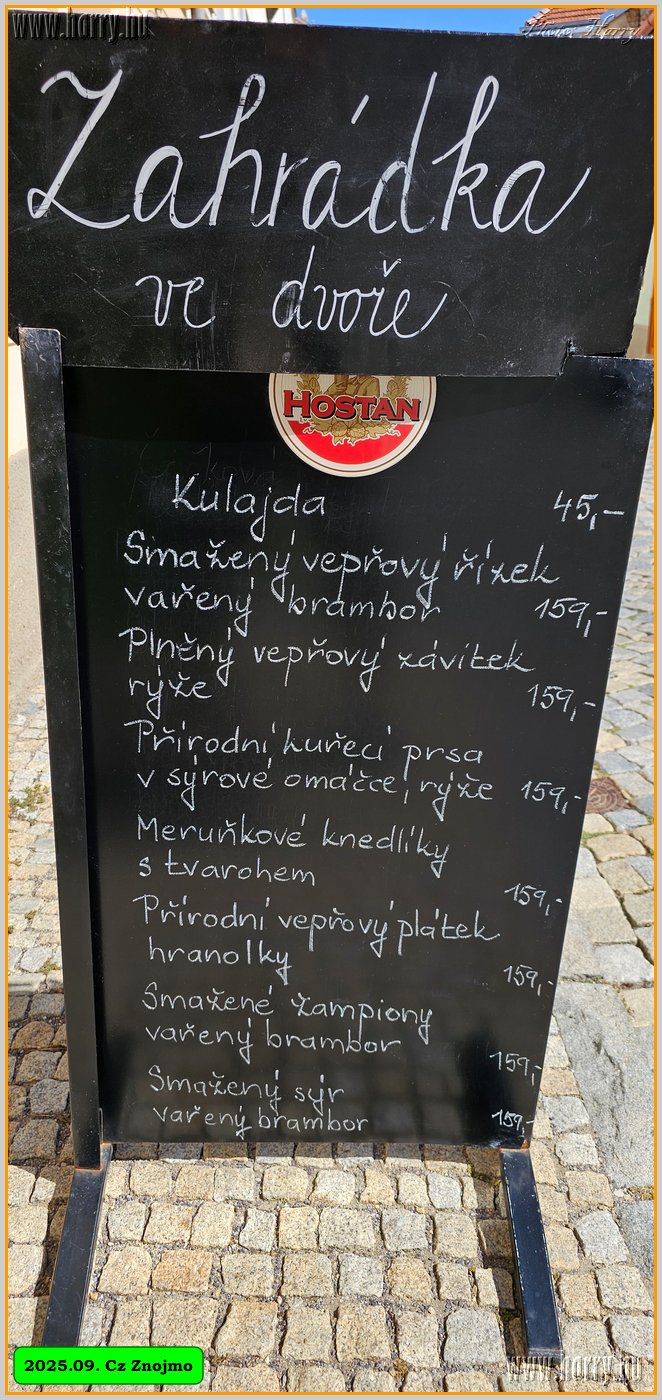 www.horry.hu
Zahrádka
ve dvoře
HOSTAN
Kulajda 45,-
Smažený vepřový řízek
vařený brambor 159,-
Plněný vepřový závitek
rýže 159,-
Přírodní kuřecí prsa
v sýrové omáčce, rýže 159,-
Meruňkové knedlíky
s tvarohem
159,-
Přírodní vepřový plátek
hranolky
159,-
Smažené žampiony
vařený brambor
159,-
Smažený sýr
vařený brambor 159,-
2025.09. Cz Znojmo
www.horry.hu